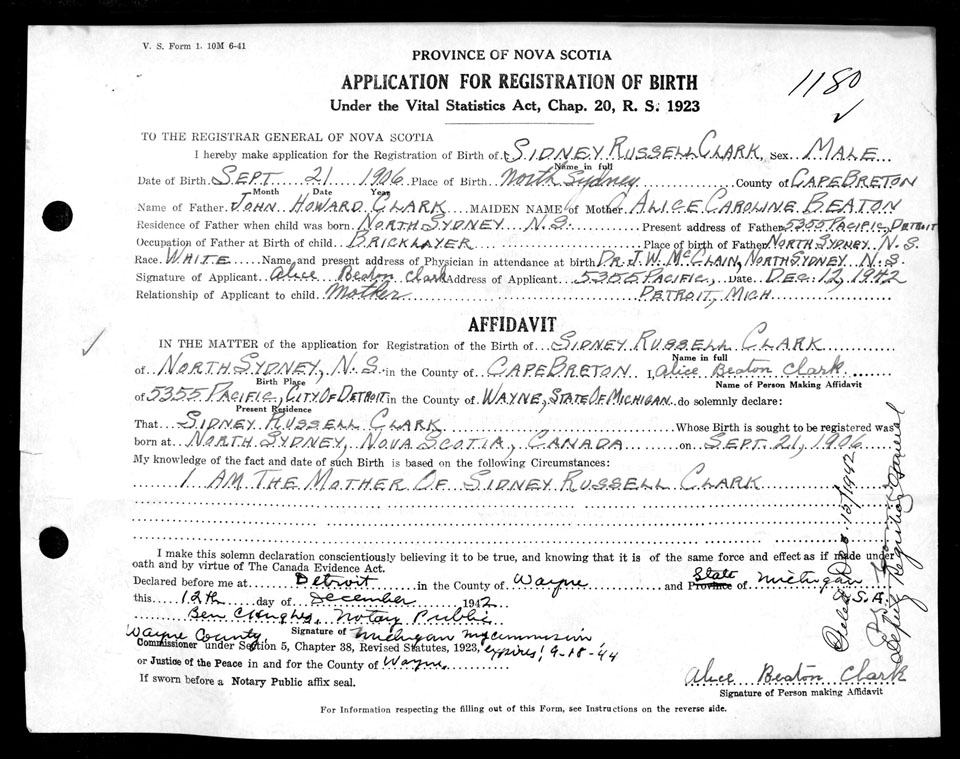 V. S. Form 1. 10M 6-41
PROVINCE OF NOVA SCOTIA
APPLICATION FOR REGISTRATION OF BIRTH
Under the Vital Statistics Act, Chap. 20, R. S. 1923
1180
TO THE REGISTRAR GENERAL OF NOVA SCOTIA
I hereby make application for the Registration of Birth of SIDNEY RUSSELL CLARK, Sex MALE
Name in full
Date of Birth SEPT 21 1906 Place of Birth North Sydney County of CAPE BRETON
Month Date Year
Name of Father JOHN HOWARD CLARK MAIDEN NAME of Mother ALICE CAROLINE BEATON
Residence of Father when child was born NORTH SYDNEY N.S. Present address of Father 5355 PACIFIC, DETROIT
Occupation of Father at Birth of child BRICKLAYER Place of birth of Father NORTH SYDNEY N.S.
Race WHITE Name and present address of Physician in attendance at birth DR. J.W. MCCLAIN, NORTH SYDNEY N.S.
Signature of Applicant Alice Beaton Clark Address of Applicant 5355 PACIFIC, Date DEC. 12, 1942
Relationship of Applicant to child Mother DETROIT, MICH
AFFIDAVIT
IN THE MATTER of the application for Registration of the Birth of SIDNEY RUSSELL CLARK
Name in full
of NORTH SYDNEY, N.S. in the County of CAPE BRETON I, Alice Beaton Clark
Birth Place Name of Person Making Affidavit
of 5355 PACIFIC, CITY OF DETROIT in the County of WAYNE, STATE OF MICHIGAN do solemnly declare:
Present Residence
That SIDNEY RUSSELL CLARK Whose Birth is sought to be registered was
born at NORTH SYDNEY, NOVA SCOTIA, CANADA on SEPT. 21, 1906
My knowledge of the fact and date of such Birth is based on the following Circumstances:
I AM THE MOTHER OF SIDNEY RUSSELL CLARK
I make this solemn declaration conscientiously believing it to be true, and knowing that it is of the same force and effect as if made under
oath and by virtue of The Canada Evidence Act.
Declared before me at Detroit in the County of Wayne and State Province of Michigan
this 12th day of December 1942 U.S.A.
Ben C Hughes, Notary Public
Wayne County, Signature of Michigan my commission
Commissioner under Section 5, Chapter 38, Revised Statutes, 1923, expires 9-18-44
or Justice of the Peace in and for the County of Wayne
If sworn before a Notary Public affix seal.
Alice Beaton Clark
Signature of Person making Affidavit
For Information respecting the filling out of this Form, see Instructions on the reverse side.
Dec. 15/1942
Deputy Registrar General